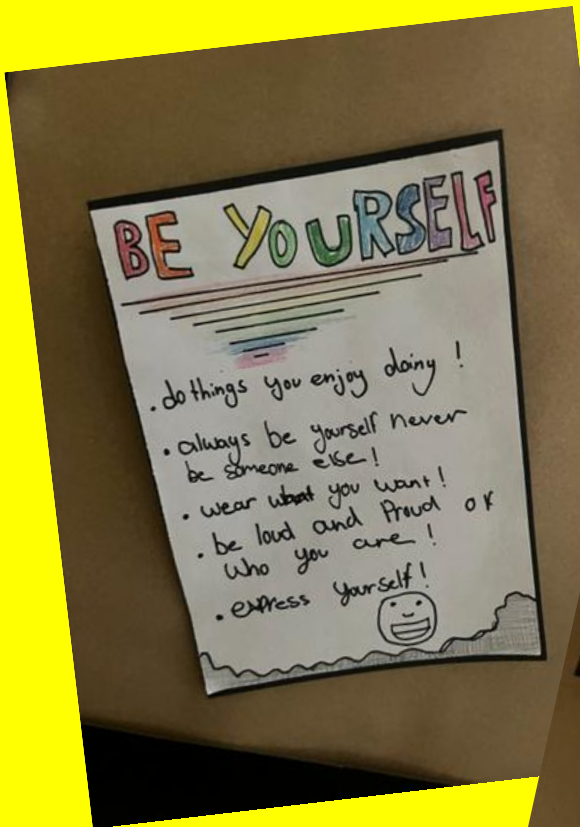 BE YOURSELF
• do things you enjoy doiny !
• always be yourself never
be someone else!
• wear what you want!
• be loud and Proud of
who you are !
• express yourself!